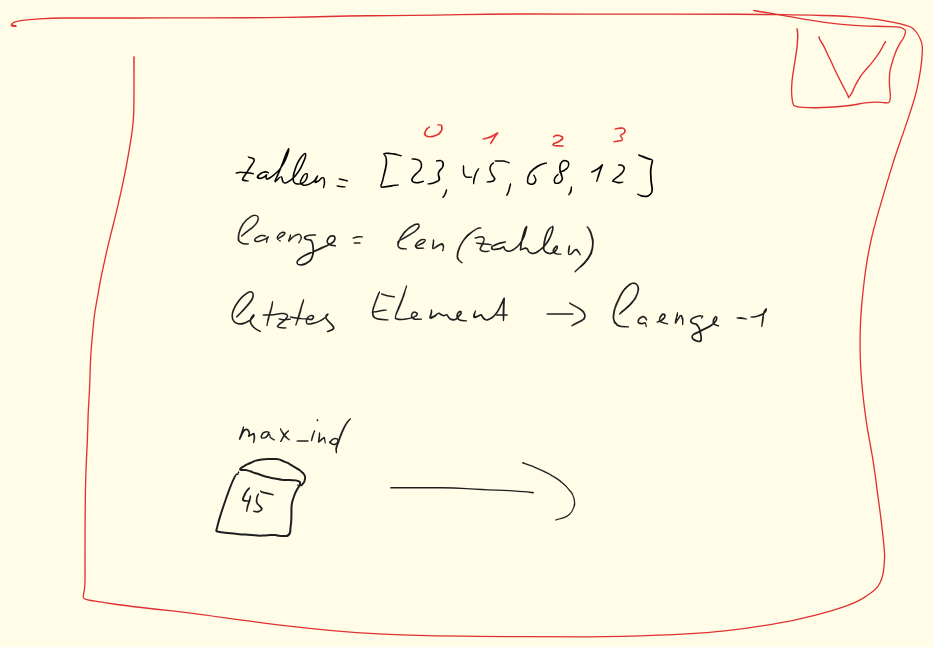 V
0 1 2 3
zahlen = [23, 45, 68, 12]
laenge = len(zahlen)
letztes Element → laenge -1
max_ind
45